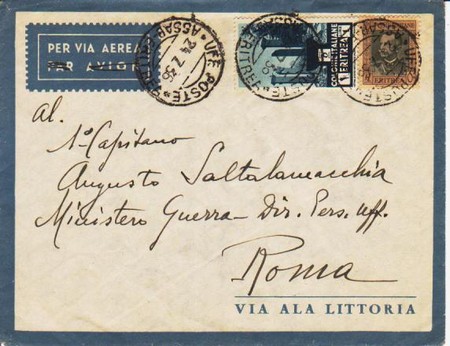 PER VIA AEREA
PAR AVION
UFF. POSTE
ASSAB
24.7.36
COLONIE ITALIANE
ERITREA
ERITREA
Al.
1º Capitano
Augusto Saltalamacchia
Ministero Guerra - Dir. Pers. uff.
Roma
VIA ALA LITTORIA